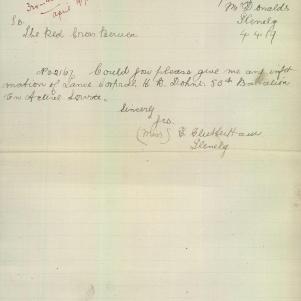 April 19
McDonalds
Glenelg
4.4.17
To
The Red Cross Bureau
No 2167 Could you please give me any infor
mation of Lance Corporal H R Dohnt 50th Battalion
On Active Service.
Sincerely
yrs.
(Miss) E
Glenelg